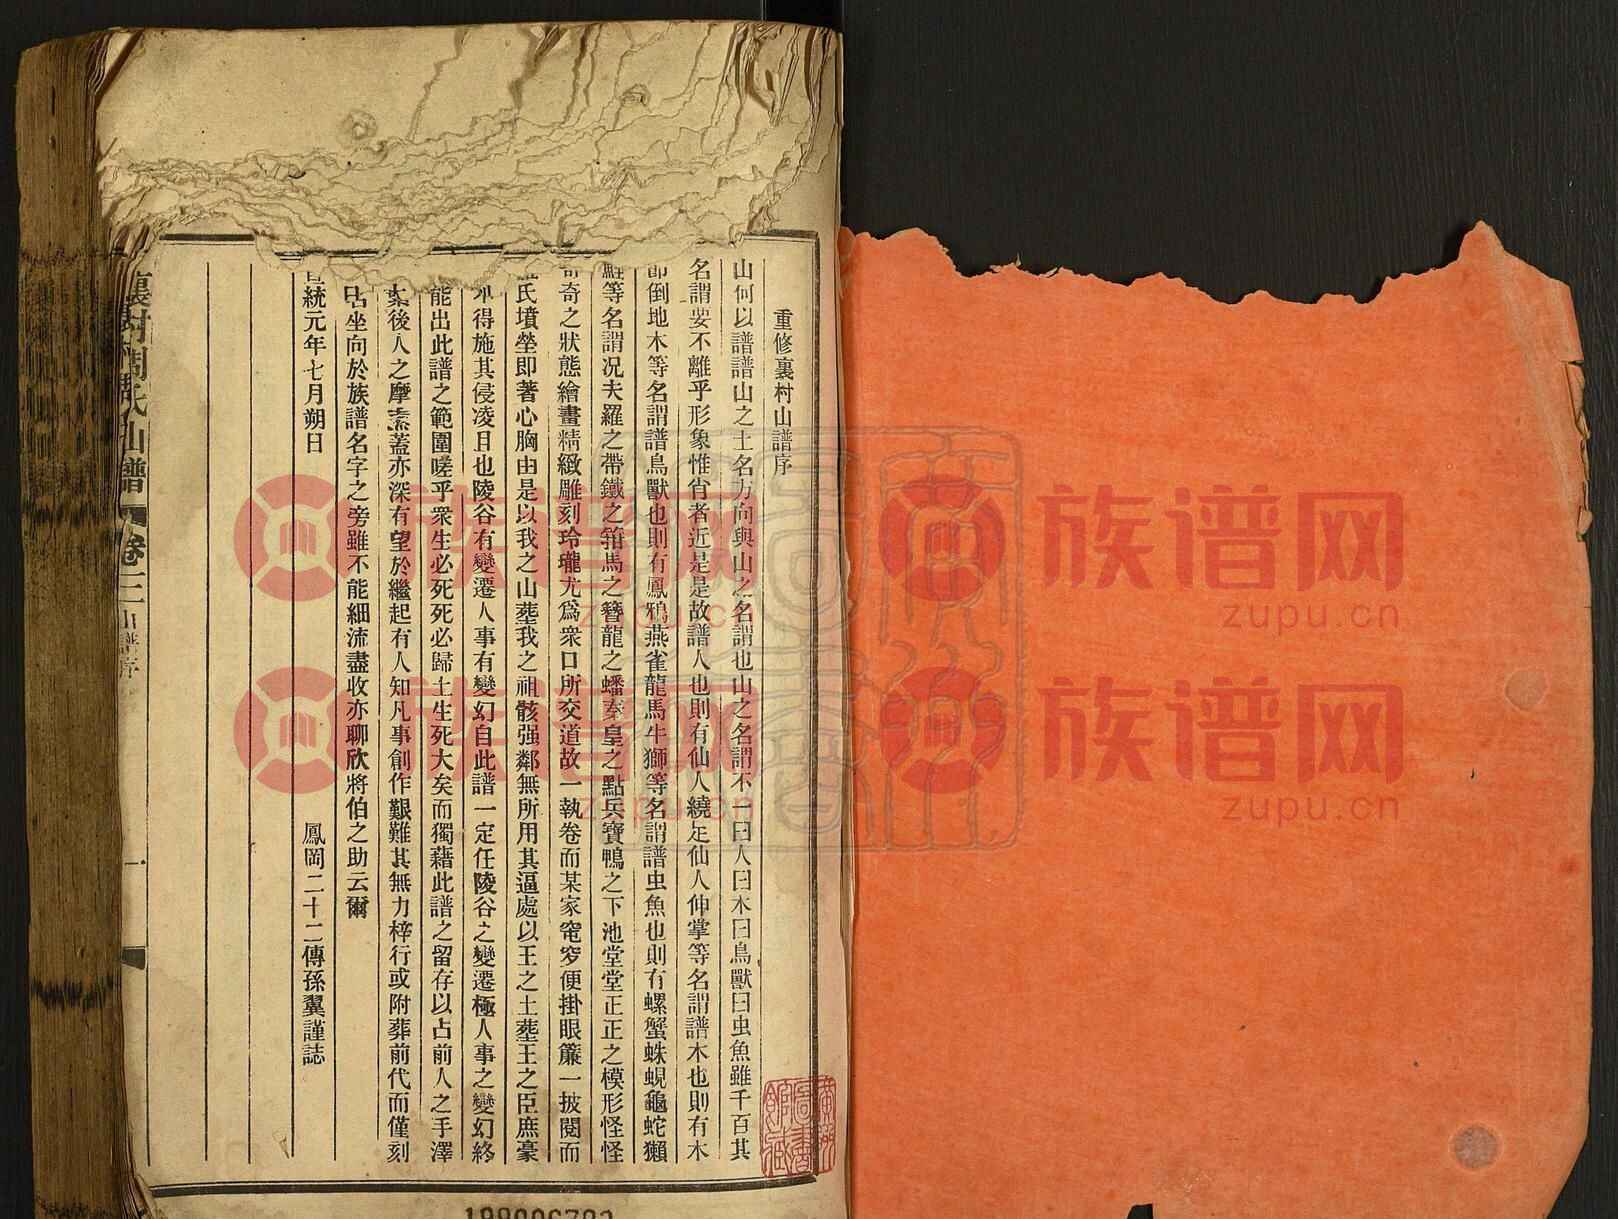 重修裏村山譜序
山何以譜譜山之土名方向與山之名謂也山之名謂不一曰人曰木曰鳥獸曰虫魚雖千百其
名謂要不離乎形象惟肖者近是是故譜人也則有仙人繞足仙人伸掌等名謂譜木也則有木
節倒地木等名謂譜鳥獸也則有鳳鴉燕雀龍馬牛獅等名謂譜虫魚也則有螺蟹蛛蜆龜蛇獺
鮭等名謂況夫羅之帶鐵之箝馬之簪龍之蟠秦皇之點兵寶鴨之下池堂堂正正之模形怪怪
奇奇之狀態繪畫精緻雕刻玲瓏尤爲衆口所交道故一執卷而某家窀穸便掛眼簾一披閱而
氏墳塋即著心胸由是以我之山塟我之祖骸强鄰無所用其逼處以王之土塟王之臣庶豪
不得施其侵凌且也陵谷有變遷人事有變幻自此譜一定任陵谷之變遷極人事之變幻終
能出此譜之範圍嗟乎衆生必死死必歸土生死大矣而獨藉此譜之留存以占前人之手澤
葉後人之摩盖亦深有望於繼起有人知凡事創作艱難其無力梓行或附葬前代而僅刻
坐向於族譜名字之旁雖不能細流盡收亦聊欣將伯之助云爾
宣統元年七月朔日 鳳岡二十二傳孫翼謹誌
裏村周氏山譜 卷二 山譜序 一
族谱网
zupu.cn
族谱网
zupu.cn
族谱网
zupu.cn
族谱网
zupu.cn